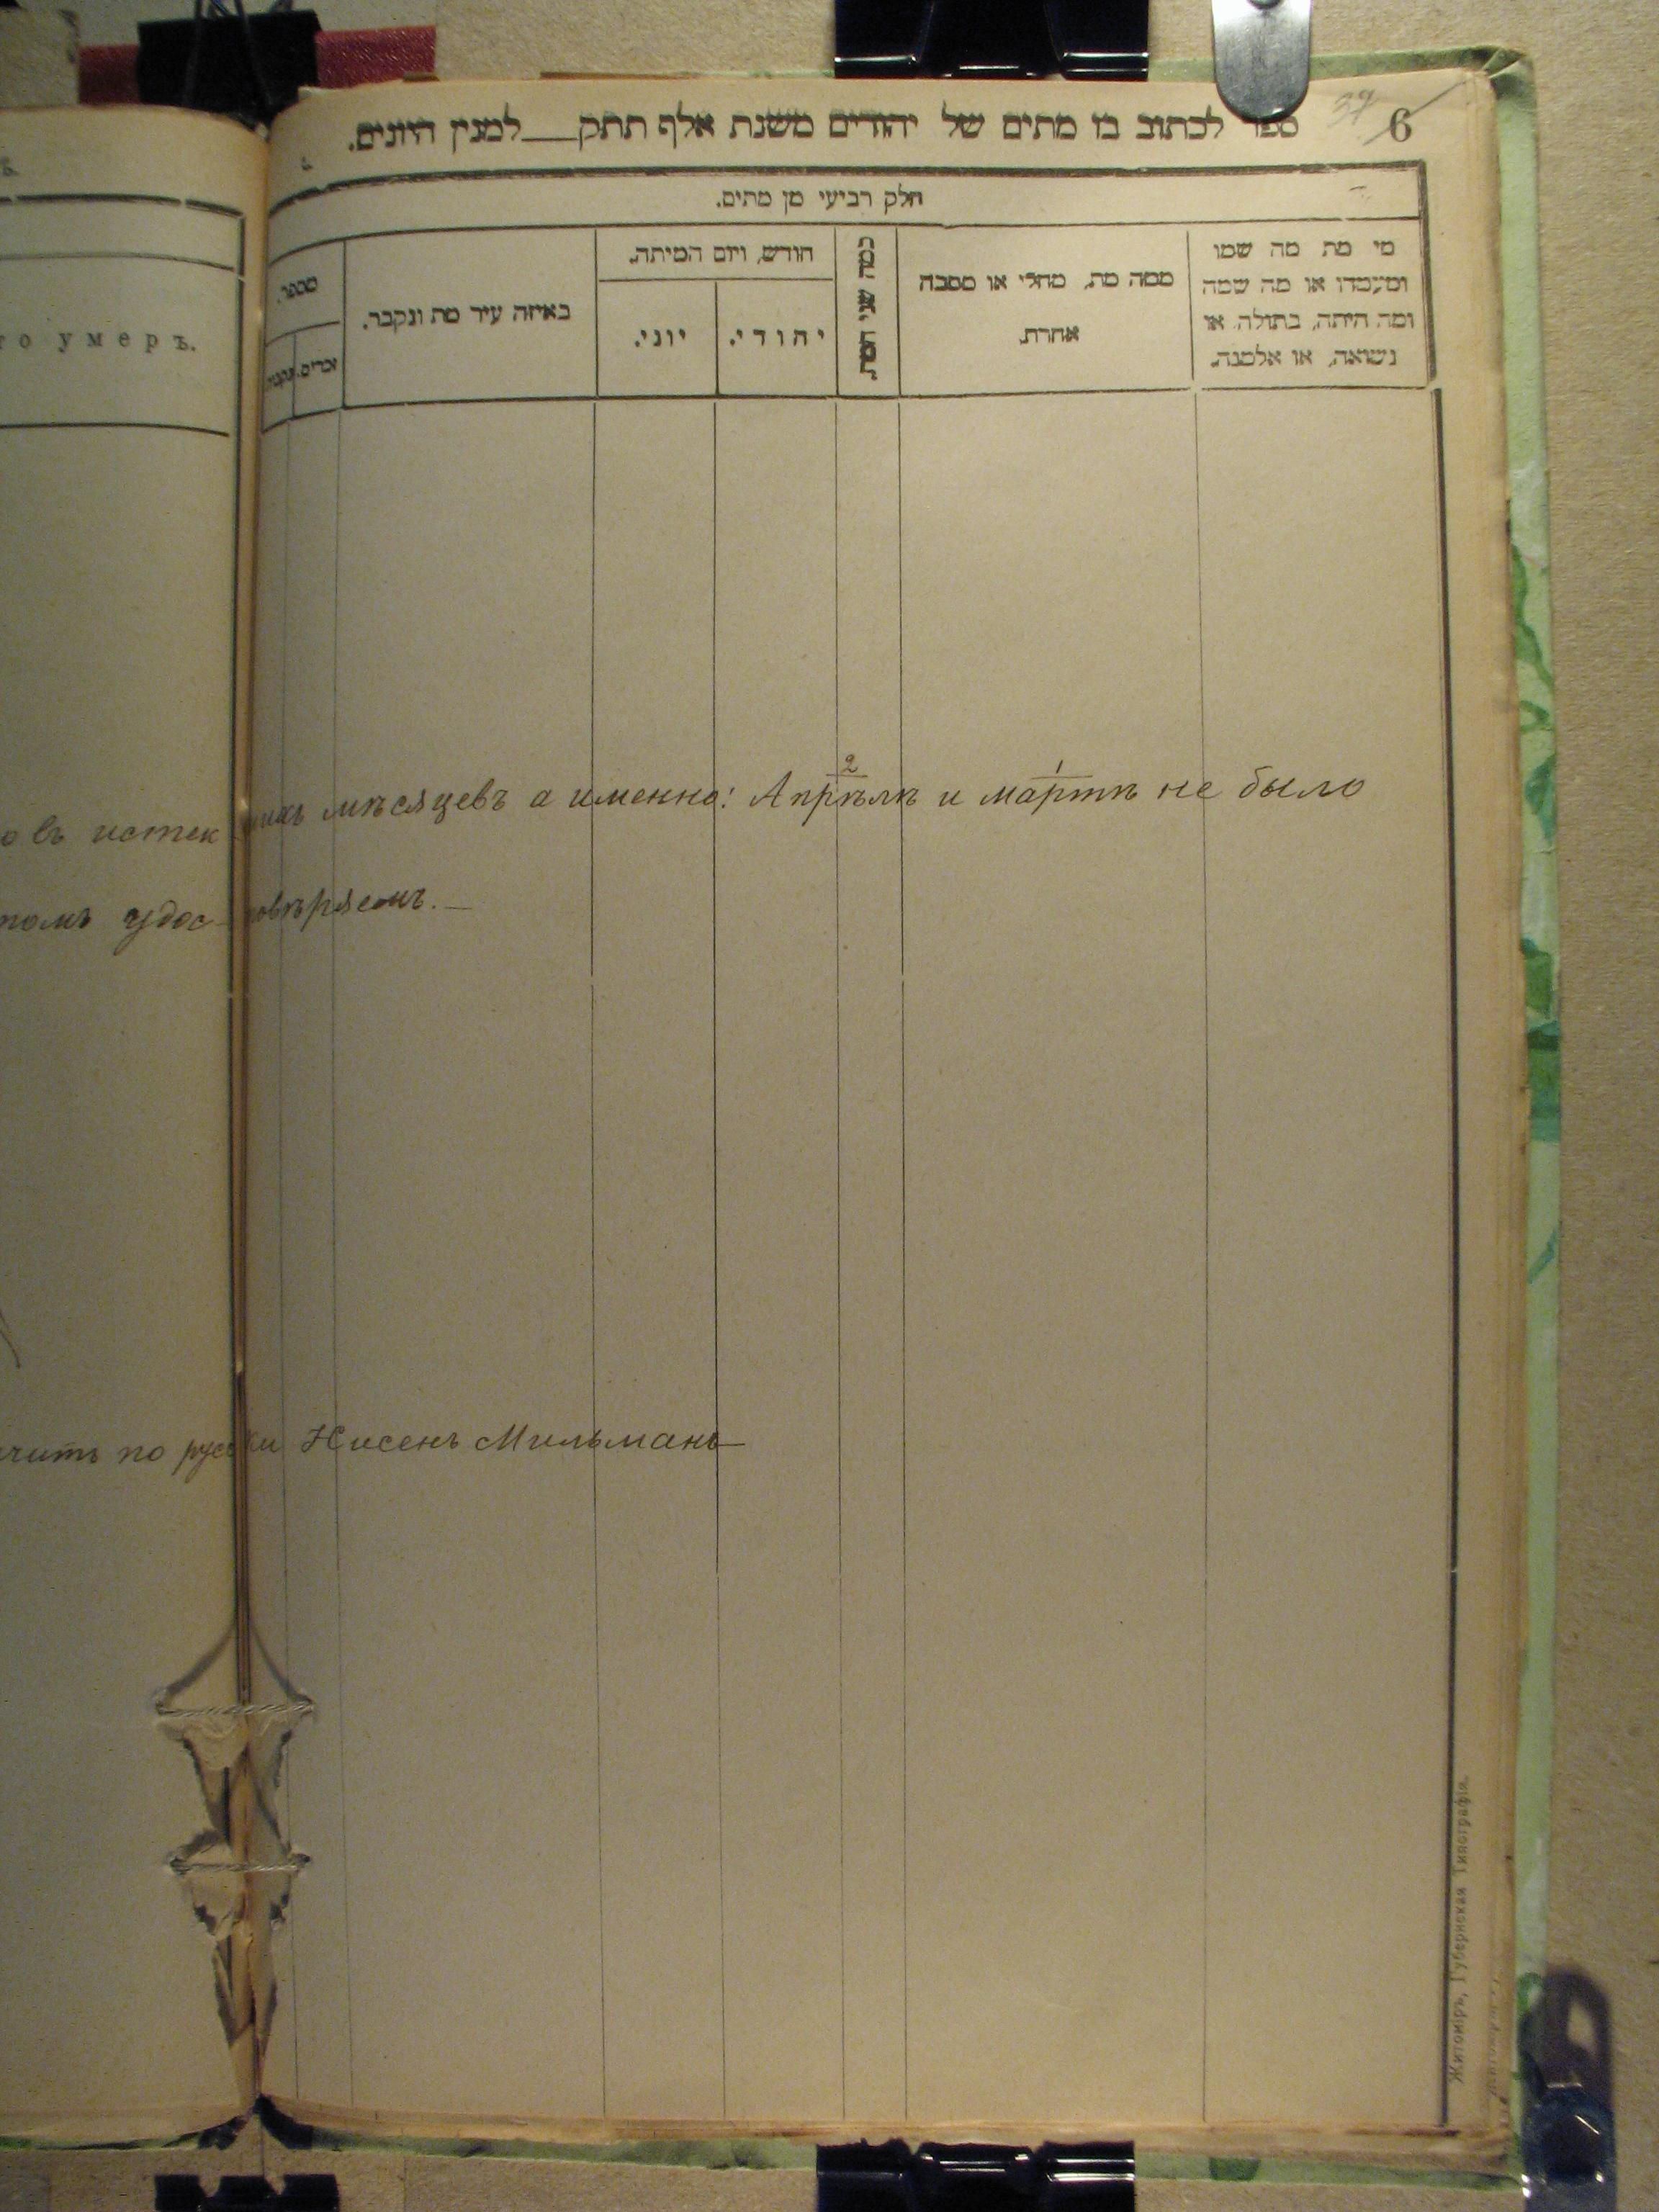 6
37
ספר לכתוב בו מתים של יהודים משנת אלף תתק למנין היונים.
חלק רביעי מן מתים.
מי מת מה שמו
ומעמדו או מה שמה
ומה היתה, בתולה, או
נשואה, או אלמנה.
ממה מת, מחלי או מסבה
אחרת.
כמה שני המת.
חודש, ויום המיתה.
יהודי.
יוני.
באיזה עיר מת ונקבר.
מספר.
זכרים.
то умеръ.
въ истекшихъ мѣсяцевъ а именно: Апрѣлѣ и мартѣ не было
2
1
томъ удостовѣряемъ.—
по русски Нисенъ Мильманъ
Житоміръ, Губернская Типографія.